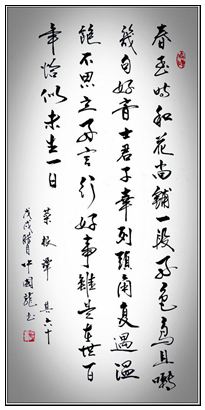 春至时和花尚铺一段好色鸟且啭
几句好音士君子幸列头角复遇温
饱不思立好言行好事虽是在世百
年恰似未生一日
菜根谭 其六十
戊戌 中国龙书